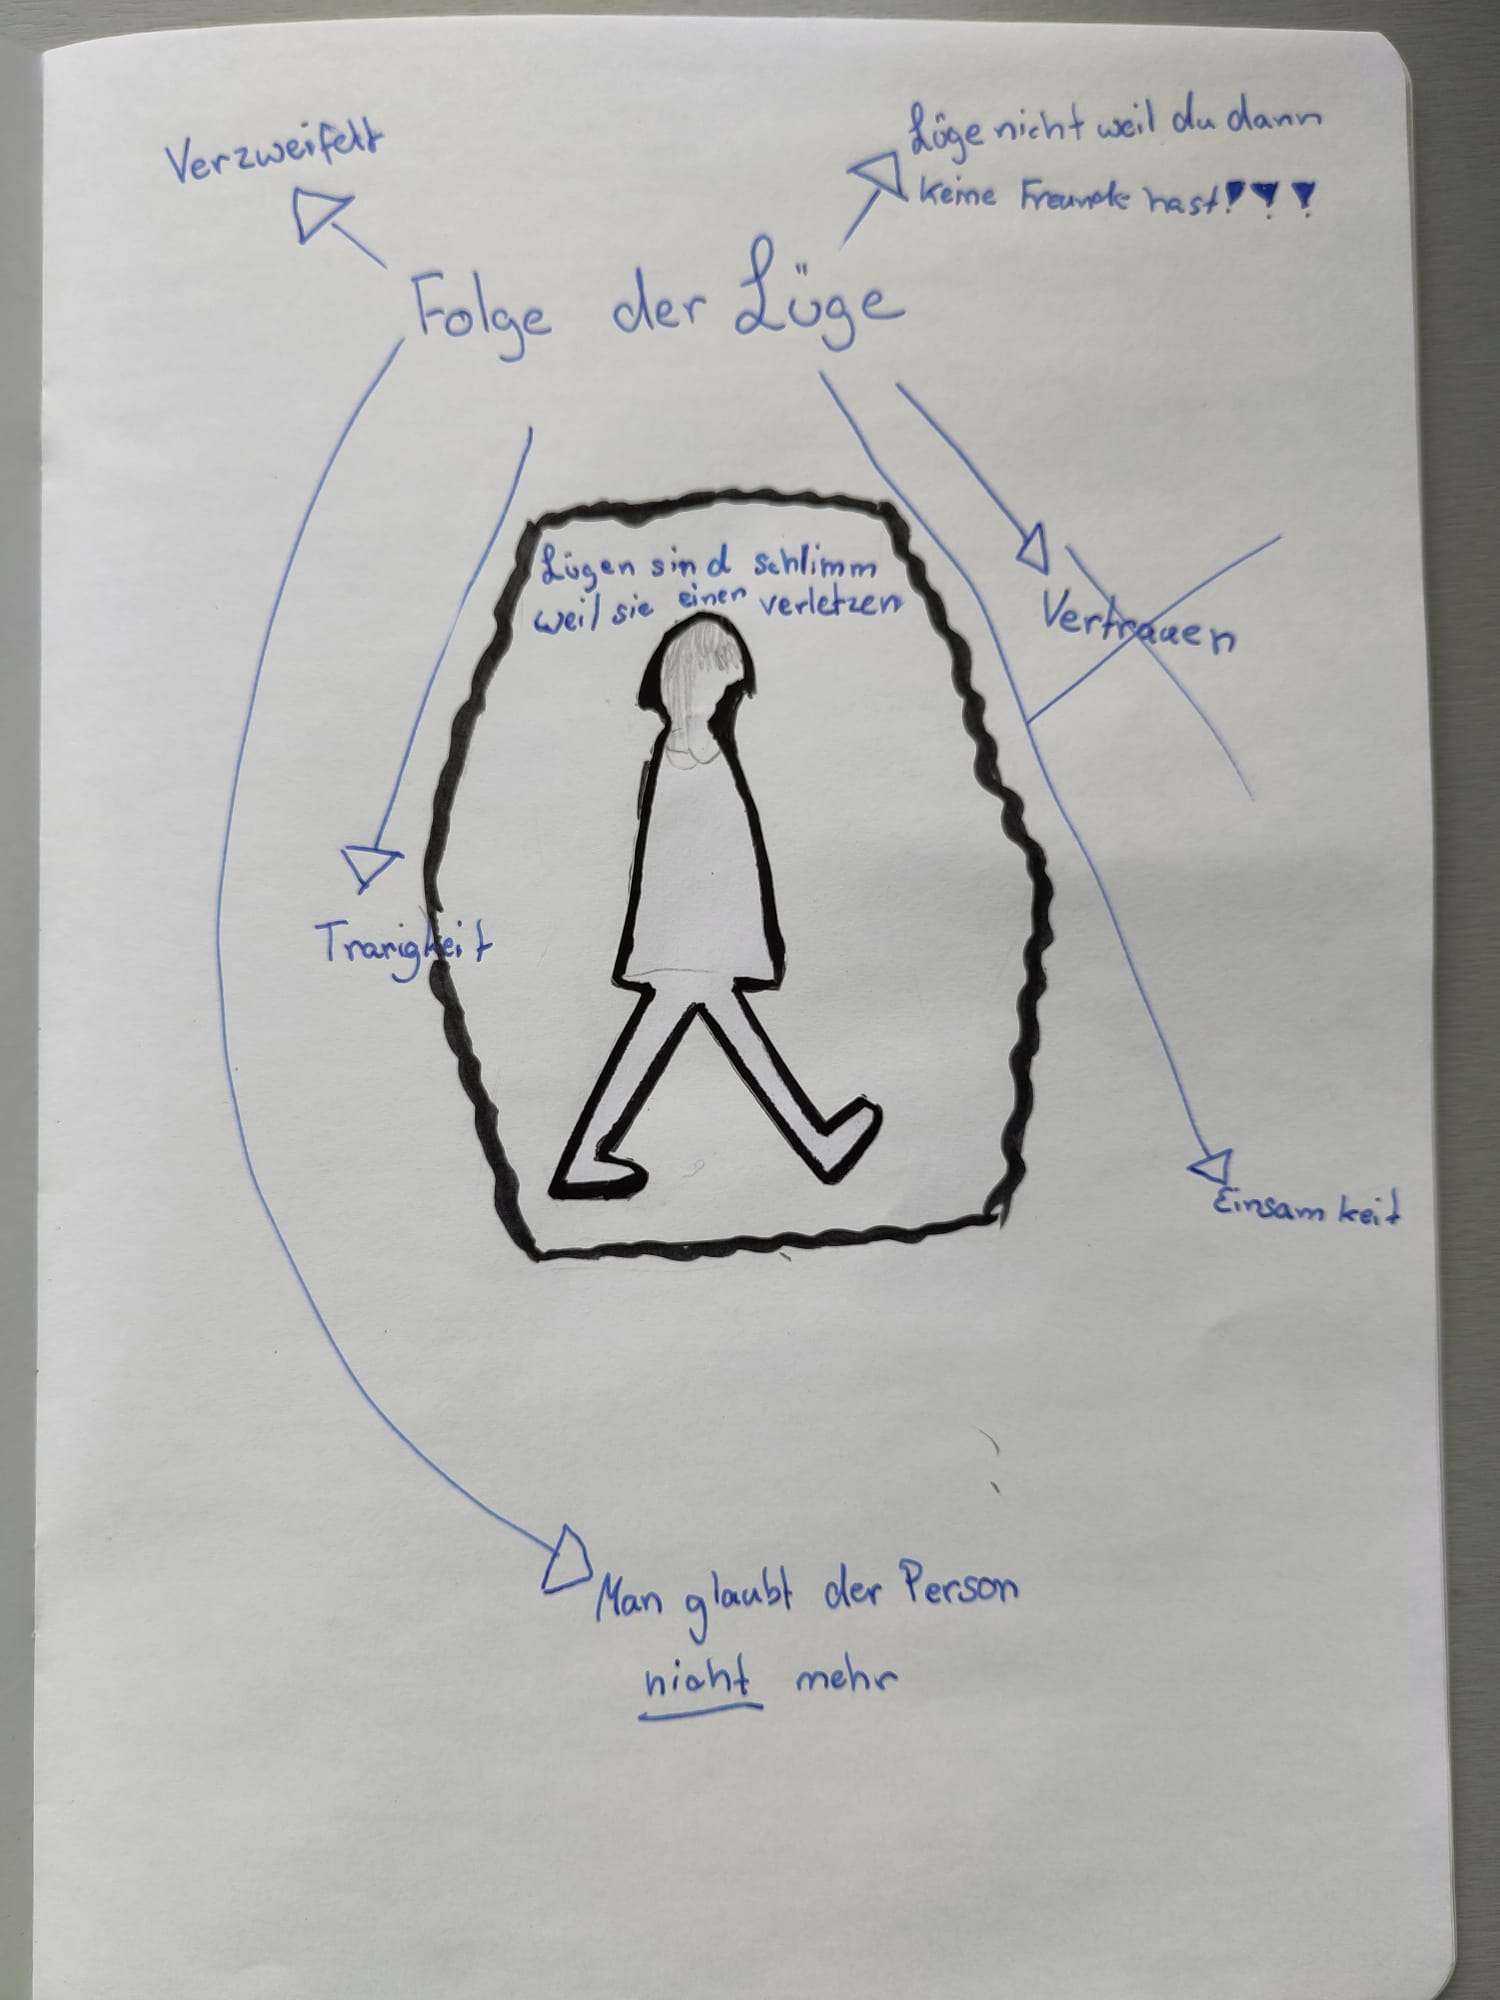 Verzweifelt
Lüge nicht weil du dann
keine Freunde hast!!!
Folge der Lüge
Lügen sind schlimm
weil sie einen verletzen
Vertrauen
Trarigkeit
Einsamkeit
Man glaubt der Person
nicht mehr